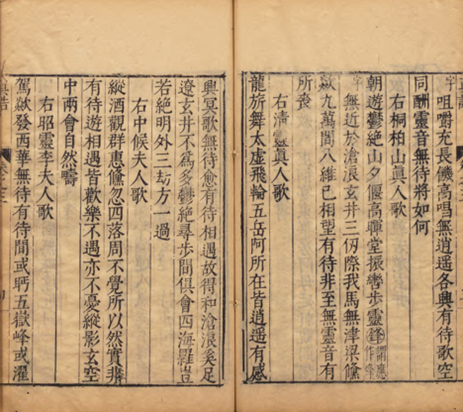 字 咀嚼充長饑高唱無逍遙各興有待歌空
同酬靈音無待將如何
右桐柏山眞人歌
朝遊鬱絕山夕偃高暉堂振轡步靈鋒謂應作峯
字 無近於滄浪玄井三仞際我馬無津梁儵
欻九萬間八維已相望有待非至無靈音有
所喪
右清靈眞人歌
龍旂舞太虛飛輪五岳阿所在皆逍遙有感
興冥歌無待愈有待相遇故得和滄浪奚足
遼玄井不爲多鬱絕尋步間俱會四海羅豈
若絕明外三劫方一過
右中候夫人歌
縱酒觀群惠儵忽四落周不覺所以然實非
有待遊相遇皆歡樂不遇亦不憂縱影玄空
中兩會自然疇
右昭靈李夫人歌
駕欻發西華無待有待間或眄五嶽峰或濯
眞誥